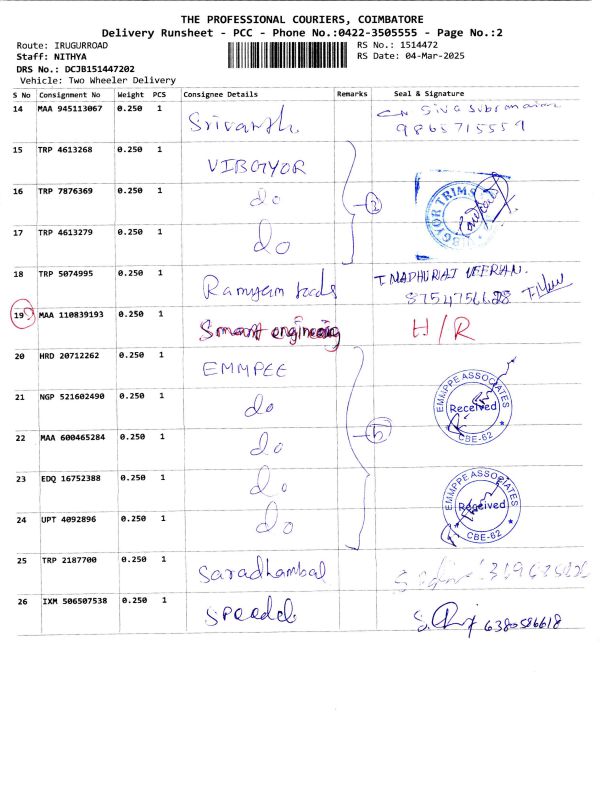 THE PROFESSIONAL COURIERS, COIMBATORE
Delivery Runsheet - PCC - Phone No.:0422-3505555 - Page No.:2
Route: IRUGURROAD RS No.: 1514472
Staff: NITHYA RS Date: 04-Mar-2025
DRS No.: DCJB151447202
Vehicle: Two Wheeler Delivery
S No Consignment No Weight PCS Consignee Details Remarks Seal & Signature
14 MAA 945113067 0.250 1 9865715559
15 TRP 4613268 0.250 1 VIBGYOR
16 TRP 7876369 0.250 1 do
17 TRP 4613279 0.250 1 do
18 TRP 5074995 0.250 1 Ramyam foods T. MADHURAI VEERAN.
19 MAA 110839193 0.250 1 Smart engineering H/R
20 HRD 20712262 0.250 1 EMMPEE
21 NGP 521602490 0.250 1 do EMMPPE ASSOCIATES Received CBE-62
22 MAA 600465284 0.250 1 do 5
23 EDQ 16752388 0.250 1 do
24 UPT 4092896 0.250 1 do EMMPPE ASSOCIATES Received CBE-62
25 TRP 2187700 0.250 1 Saradhambal
26 IXM 506507538 0.250 1 6380586618